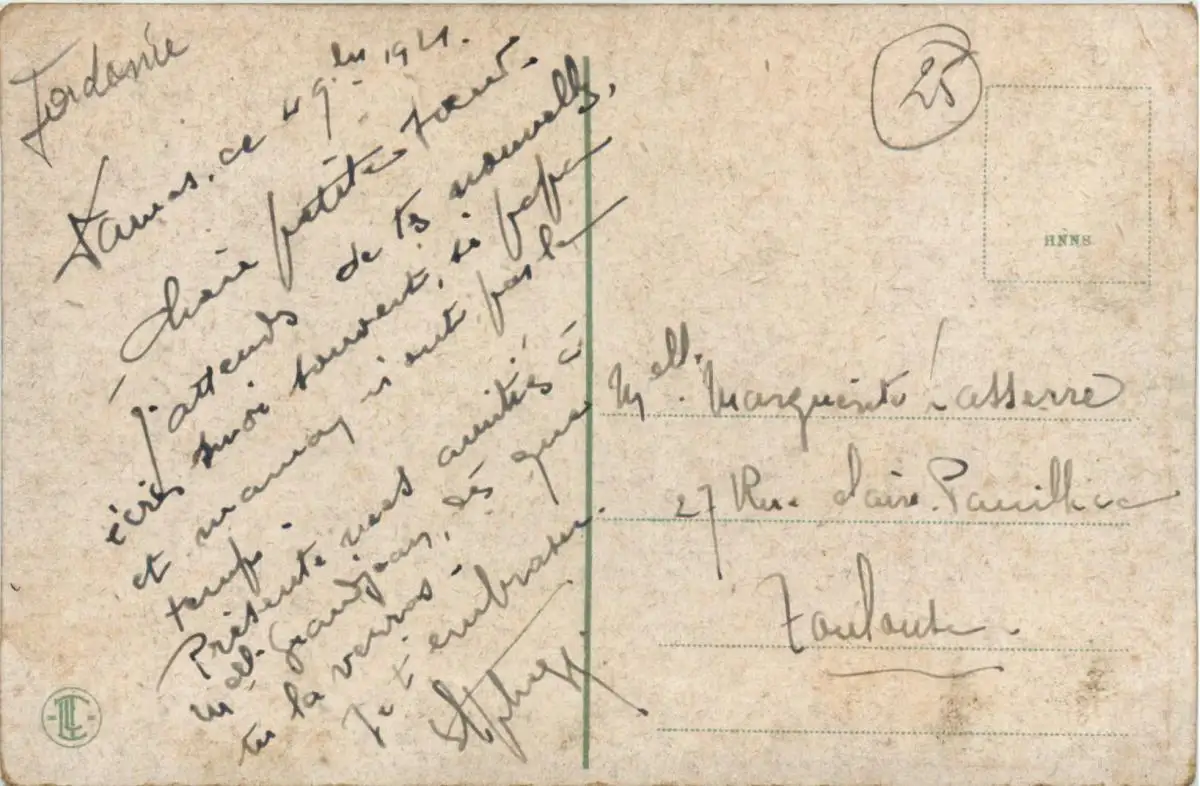 Jordanie
Damas, ce 4 9bre 1921.
Chère petite soeur.
J'attends de tes nouvelles,
écris moi souvent, si papa
et maman n'ont pas le
temps.
Présente mes amitiés à
Mell. Grandjean, dès que
tu la verras.
Je t'embrasse.
25
HNNS
Mell. Marguerite Lasserre
27 Rue Claire Pauilhac
Toulouse.